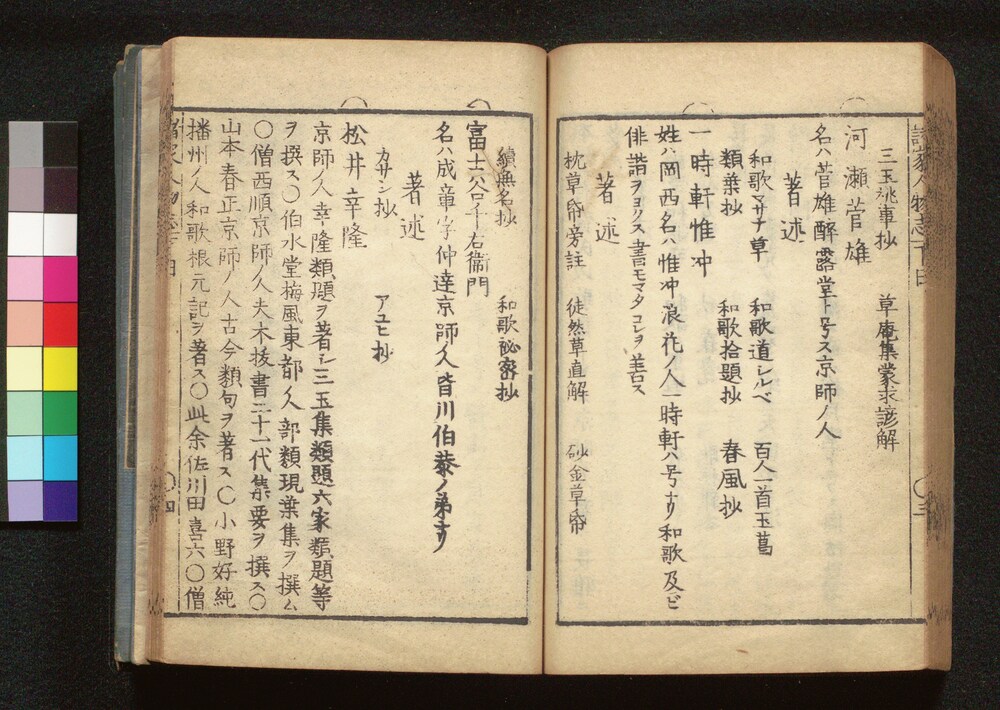 三玉挑事抄　草庵集蒙求諺解
河瀬菅雄
名ハ菅雄酔露堂ト号ス京師ノ人
著述
和歌マサナ草　和歌道シルベ　百人一首玉葛
類葉抄　和歌拾題抄　春風抄
一時軒惟冲
姓ハ岡西名ハ惟冲浪花ノ人一時軒ハ号ナリ和歌及ビ
俳諧ヲヨクス書モマタコレヲ善ス
著述
枕草帋旁註　徒然草直解　砂金草帋
續無名抄　和歌祕密抄
富士谷千右衞門
名ハ成章字仲達京師人皆川伯恭ノ弟ナリ
著述
カザシ抄　アユヒ抄
松井幸隆
京師ノ人幸隆類題ヲ著シ三玉集類題六家類題等
ヲ撰ス〇伯水堂梅風東都ノ人部類現葉集ヲ撰ム
〇僧西順京師ノ人夫木抜書二十一代集要ヲ撰ス〇
山本春正京師ノ人古今類句ヲ著ス〇小野好純
播州ノ人和歌根元記ヲ著ス〇此余佐川田喜六〇僧